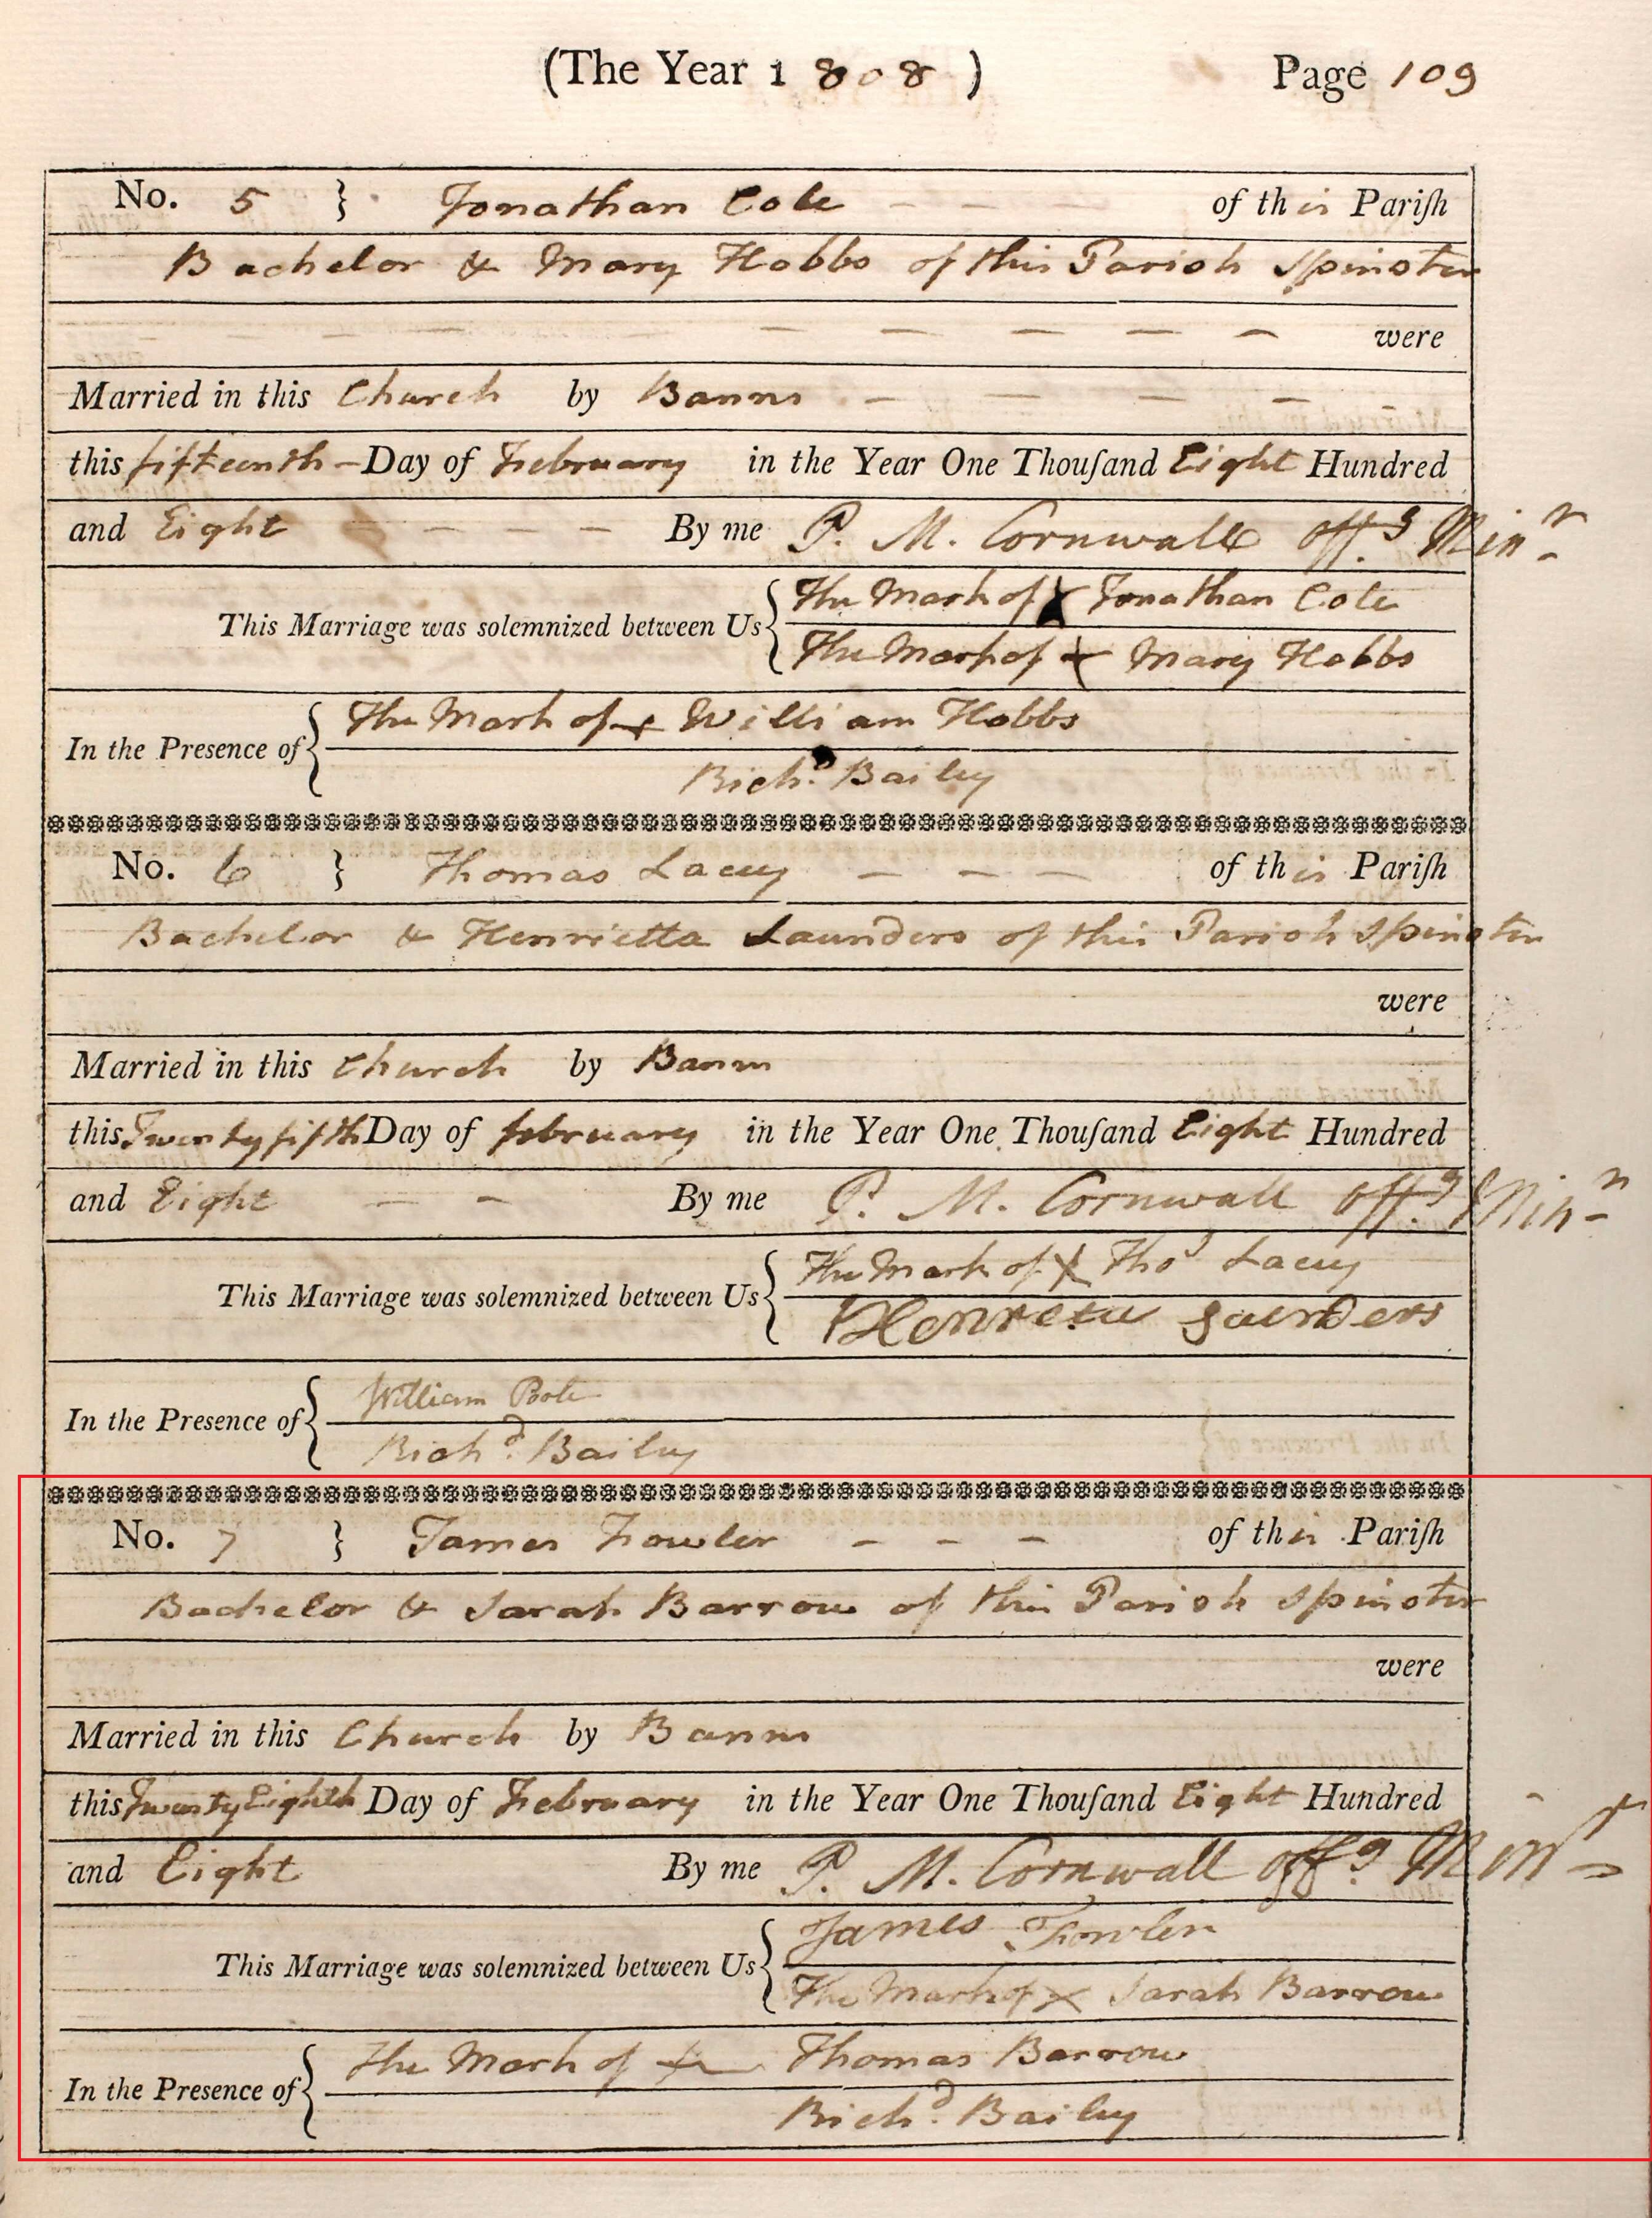 (The Year 1808) Page 109
No. 5 } Jonathan Cole - - - of this Pariſh
Bachelor & Mary Hobbs of this Parish Spinster
- - - - - - - - were
Married in this Church by Banns - - - - -
this fifteenth - Day of February in the Year One Thouſand Eight Hundred
and Eight - - - By me P. M. Cornwall offg Minr
This Marriage was solemnized between Us { The Mark of X Jonathan Cole
The Mark of X Mary Hobbs
In the Presence of { The Mark of X William Hobbs
Richd Bailey
No. 6 } Thomas Lacey - - - of this Pariſh
Bachelor & Henrietta Saunders of this Parish Spinster
were
Married in this Church by Banns
this Twenty fifth Day of february in the Year One Thouſand Eight Hundred
and Eight - - By me P. M. Cornwall offg Minr
This Marriage was solemnized between Us { The Mark of X Thos Lacey
Henreta Saunders
In the Presence of { William Poole
Richd Bailey
No. 7 } James Fowler - - - of this Pariſh
Bachelor & Sarah Barrow of this Parish Spinster
were
Married in this Church by Banns
this Twenty Eighth Day of February in the Year One Thouſand Eight Hundred
and Eight By me P. M. Cornwall offg Minr
This Marriage was solemnized between Us { James Fowler
The Mark of X Sarah Barrow
In the Presence of { The Mark of X Thomas Barrow
Richd Bailey